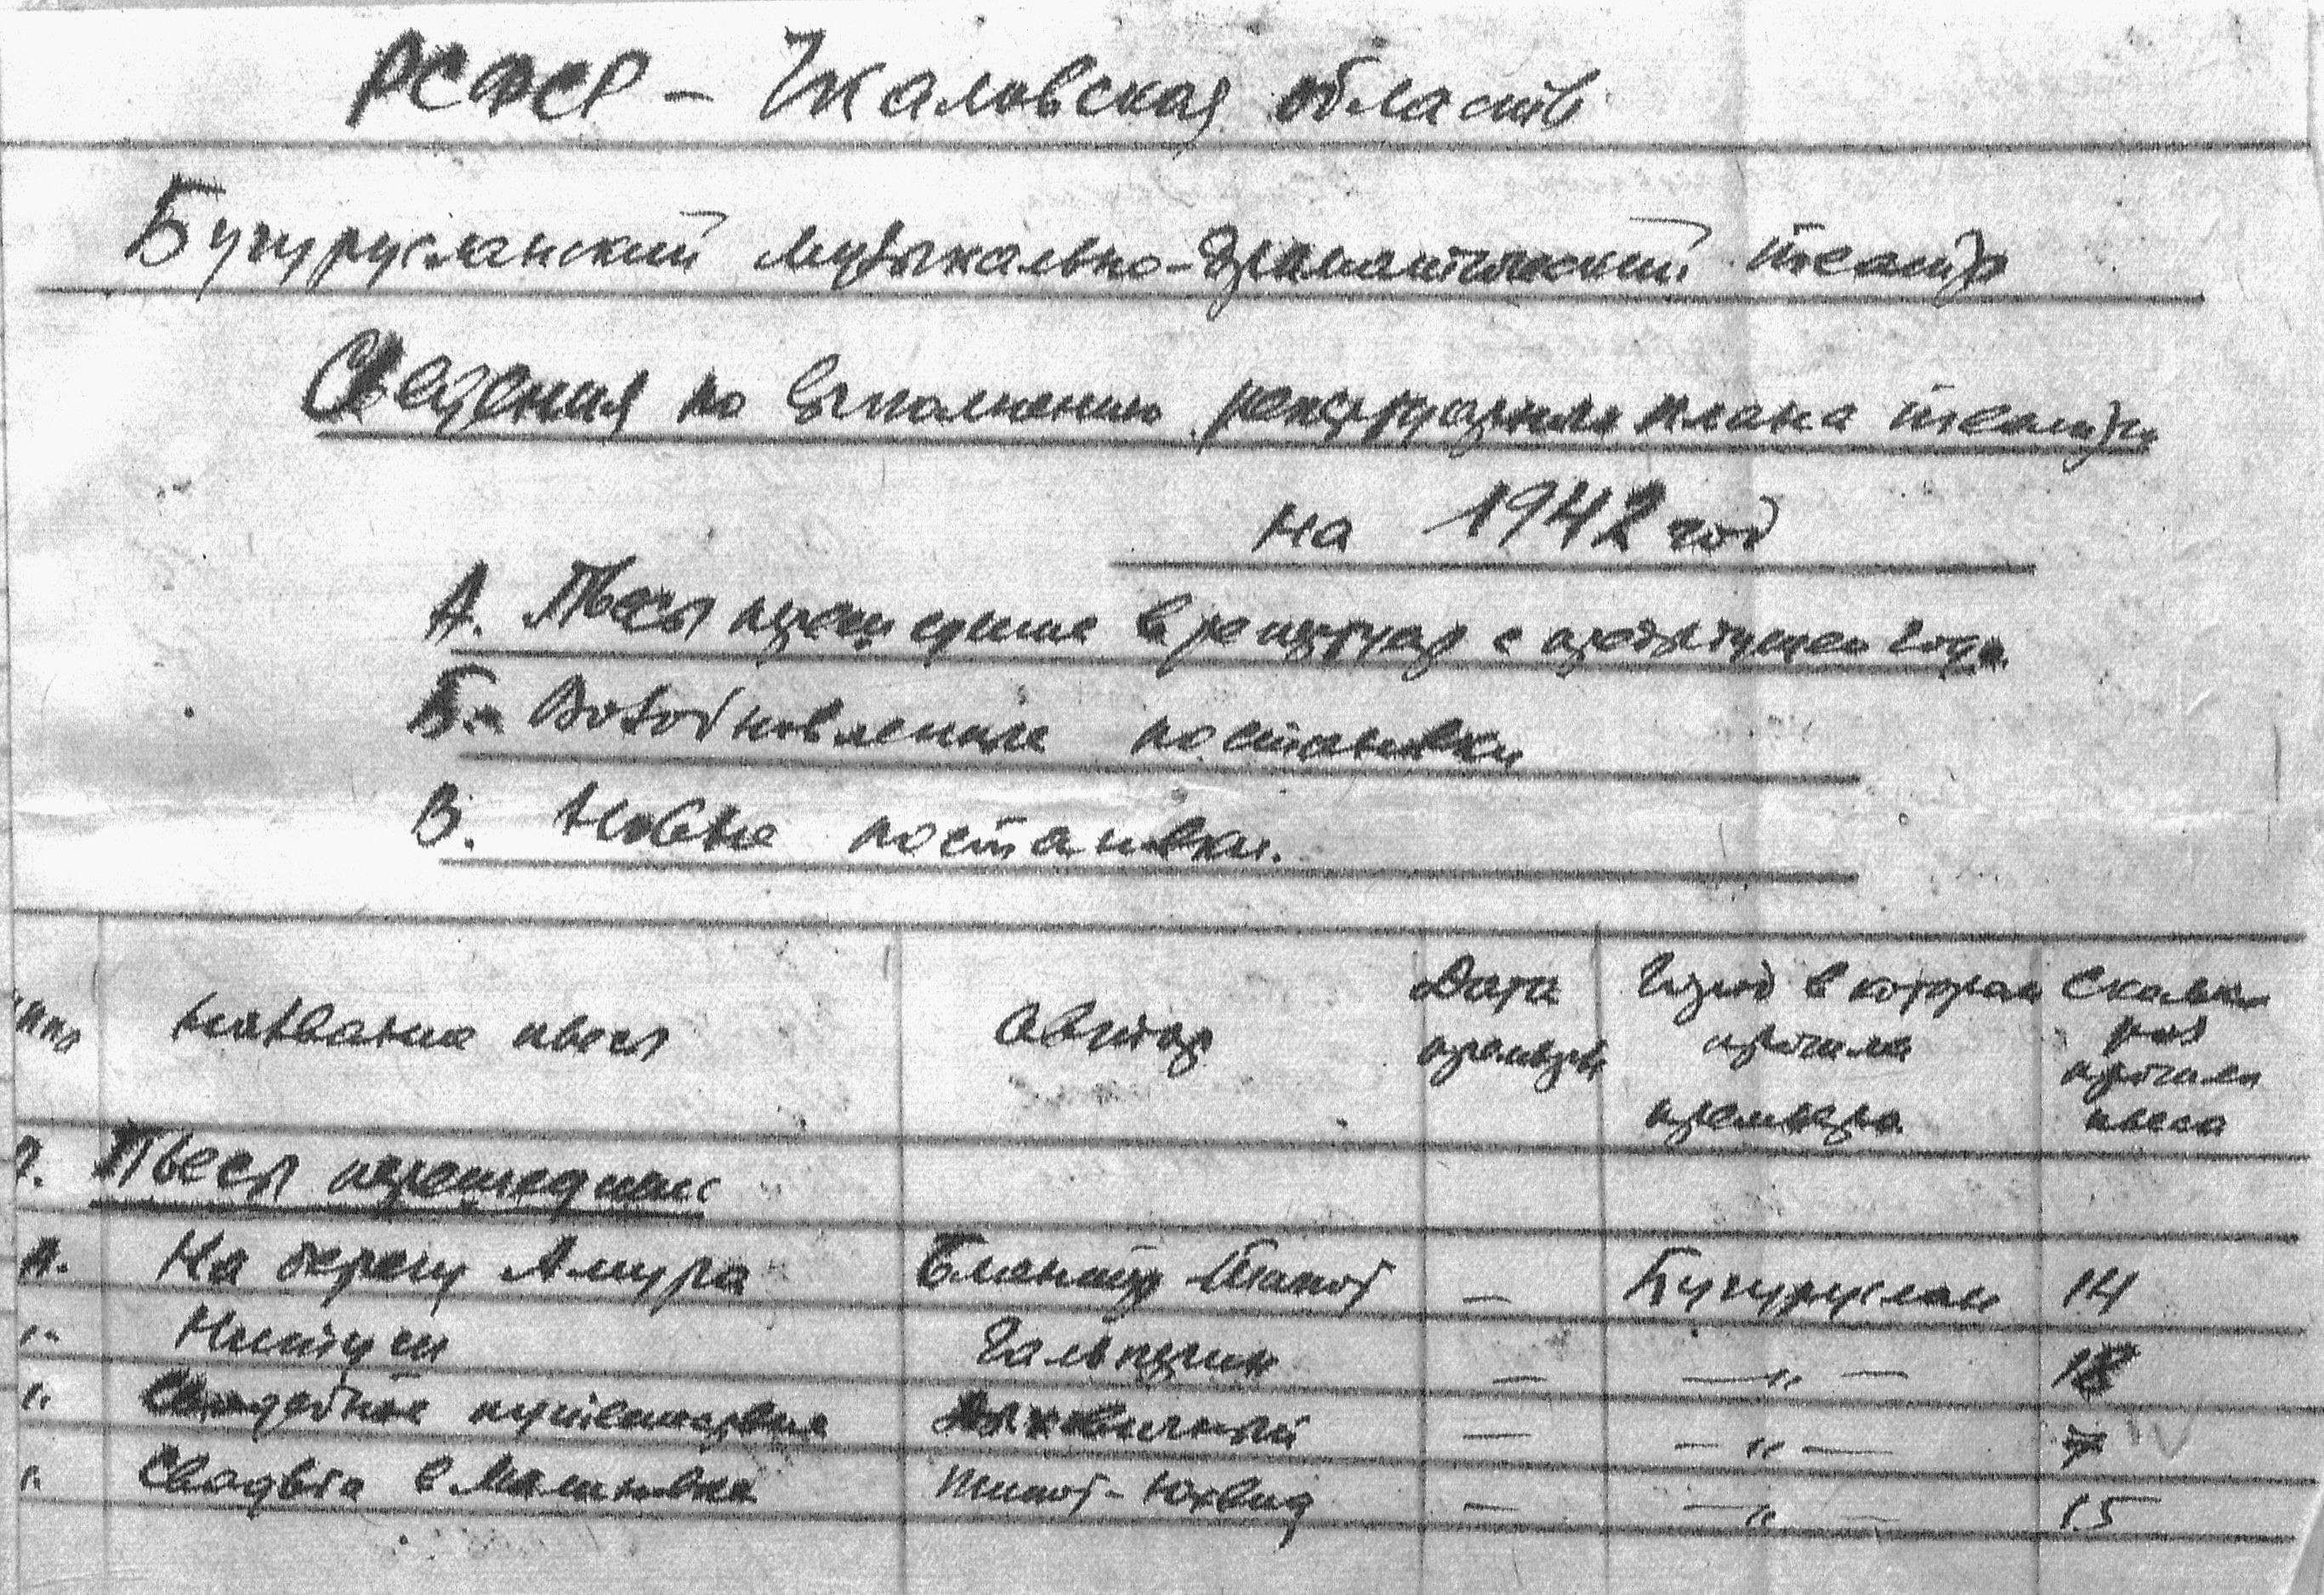 РСФСР – Чкаловская область
Бугурусланский музыкально-драматический театр
Сведения по выполнению репертуарного плана театра
на 1942 год
А. Пьесы перешедшие в репертуар с предыдущего года
Б. Возобновленные постановки
В. Новые постановки.
Название пьесы Автор Дата премьеры Город в котором прошла премьера Сколько раз прошла пьеса
Пьесы перешедшие
А. На берегу Амура Блантер Типот – Бугуруслан 14
" Нитуш Гальперин – – " –
" Свадебное путешествие Дыховичный – – " – 7
" Свадьба в Малиновке Типот-Юхвид – – " – 15